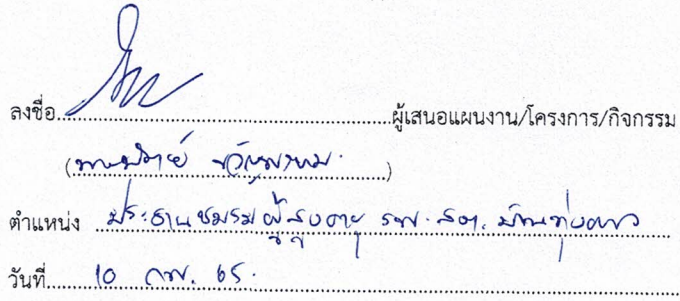 ลงชื่อ........................................................ผู้เสนอแผนงาน/โครงการ/กิจกรรม
(..............................................)
ตำแหน่ง ประธานชมรมผู้สูงอายุ รพ.สต. บ้านทุ่งยาว
วันที่ 10 กพ. 65.